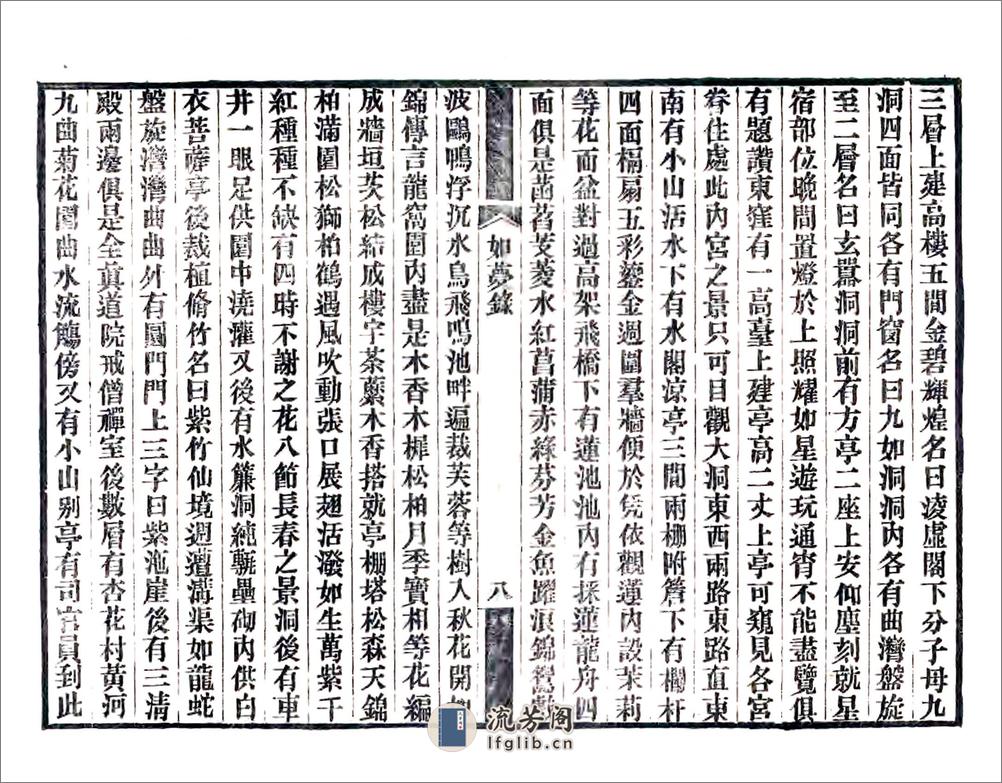 三層上建高樓五間金碧輝煌名曰淩虛閣下分子母九
洞四面皆同各有門窗名曰九如洞洞內各有曲灣盤旋
至二層名曰玄囂洞洞前有方亭二座上安仰塵刻就星
宿部位晚間置燈於上照耀如星遊玩通宵不能盡覽俱
有題讚東窪有一高臺上建亭高二丈上亭可窺見各宮
眷住處此內宮之景只可目觀大洞東西兩路東路直東
南有小山活水下有水閣涼亭三間兩棚附簷下有欄杆
四面槅扇五彩鎏金週圍羣牆便於凭依觀蓮內設茉莉
等花面盆對過高架飛橋下有蓮池池內有採蓮龍舟四
面俱是菡萏芰菱水紅菖蒲赤綠芬芳金魚躍浪錦鴛
如夢錄
八
波鷗鳴浮沉水鳥飛鳴池畔遍栽芙蓉等樹入秋花開
錦傳言龍窩園內盡是木香木槿松柏月季寶相等花編
成牆垣茨松結成樓宇茶蘪木香搭就亭棚塔松森天錦
柏滿園松獅柏鶴遇風吹動張口展翅活潑如生萬紫千
紅種種不缺有四時不謝之花八節長春之景洞後有車
井一眼足供園中澆灌又後有水簾洞純甎壘砌內供白
衣菩薩亭後栽植脩竹名曰紫竹仙境週遭溝渠如龍蛇
盤旋灣灣曲曲外有園門門上三字曰紫沲崖後有三清
殿兩邊俱是全眞道院戒僧禪室後數層有杏花村黃河
九曲菊花園曲水流觴傍又有小山别亭有司官員到此
流芳閣
lfglib.cn